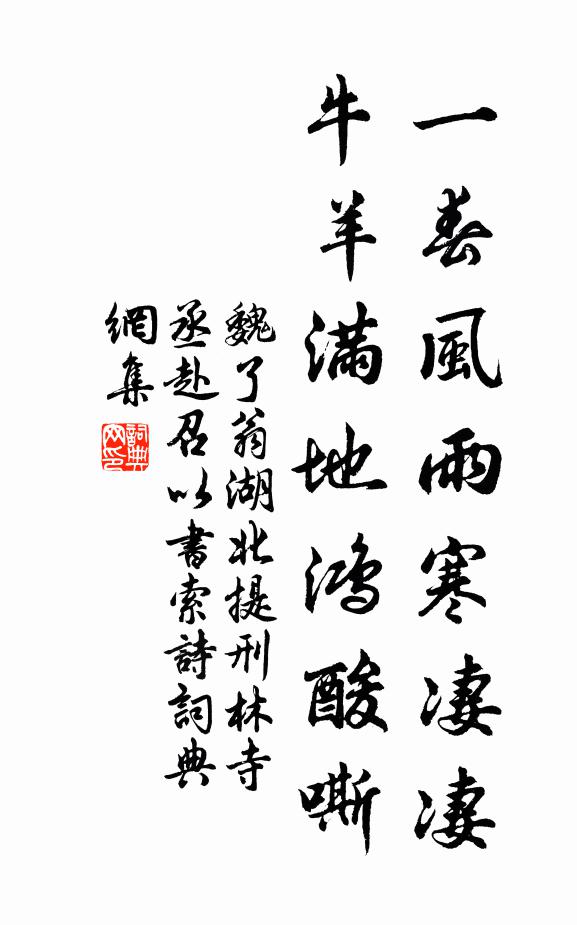 一春風雨寒凄凄
牛羊满地鸿酸嘶
魏了翁湖北提刑林寺
丞赴召以書索詩詞典
網集
詞典网印